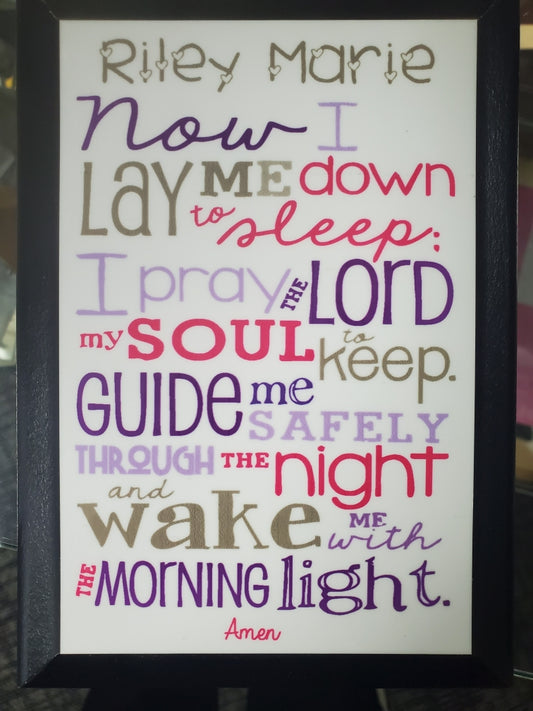 Riley Marie
Now I
LAY ME down
to sleep;
I pray THE LORD
my SOUL to keep.
GUIDE me SAFELY
THROUGH THE night
and wake ME with
THE MORNING light.
Amen